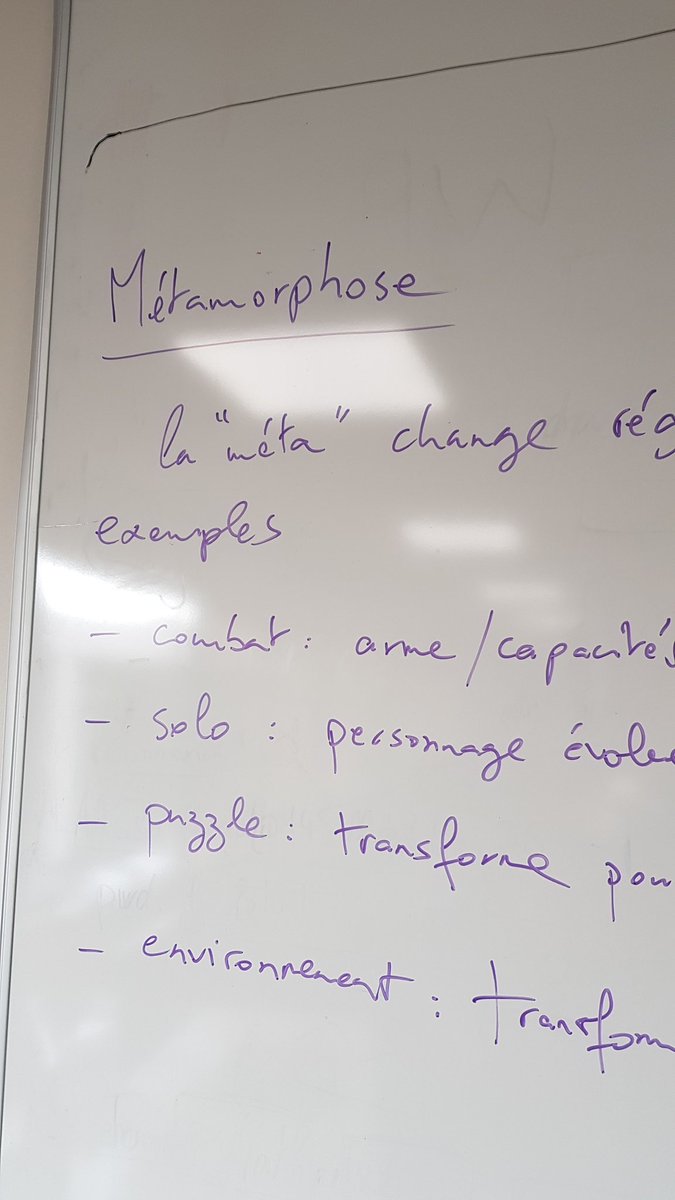 Métamorphose
la "méta" change rég
exemples
- combat : arme / capacités
- solo : personnage évolue
- puzzle : transforme pour
- environnement : transform